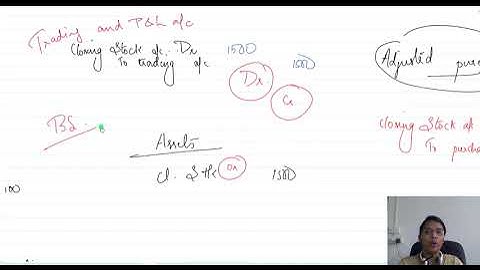 Trading and P&L a/c
Closing Stock a/c. Dr 1500
To trading a/c 1500
Dr
Cr
Adjusted purc
Closing Stock a/c
To purcha
BS.
Assets
Cl. Stk Dr 1500
100